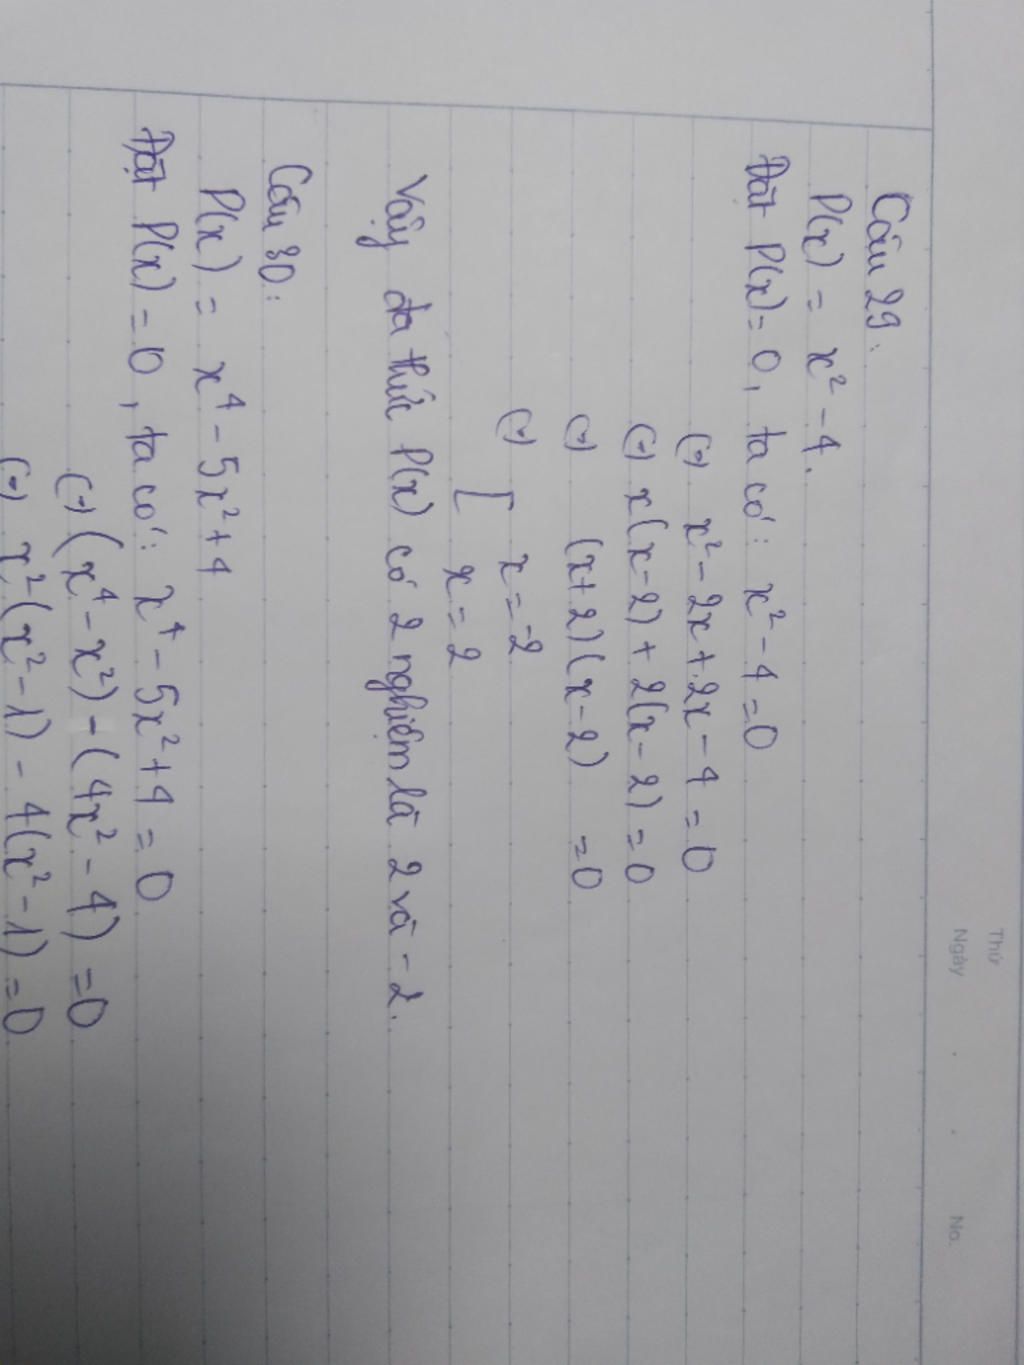 Thứ
Ngày No.
Câu 29:
P(x) = x² - 4.
Đặt P(x) = 0, ta có: x² - 4 = 0
(=) x² - 2x + 2x - 4 = 0
(=) x(x-2) + 2(x-2) = 0
(=) (x+2)(x-2) = 0
(=) [ x = -2
x = 2
Vậy đa thức P(x) có 2 nghiệm là 2 và -2.
Câu 30:
P(x) = x⁴ - 5x² + 4
Đặt P(x) = 0, ta có: x⁴ - 5x² + 4 = 0
(=) (x⁴ - x²) - (4x² - 4) = 0
(=) x²(x² - 1) - 4(x² - 1) = 0